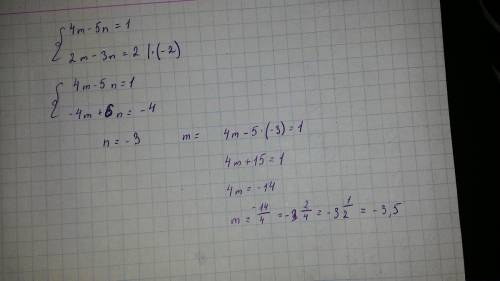 4m - 5n = 1
2m - 3n = 2 | · (-2)
4m - 5n = 1
-4m + 6n = -4
n = -3
m = 4m - 5 · (-3) = 1
4m + 15 = 1
4m = -14
m = -14/4 = -3 2/4 = -3 1/2 = -3,5